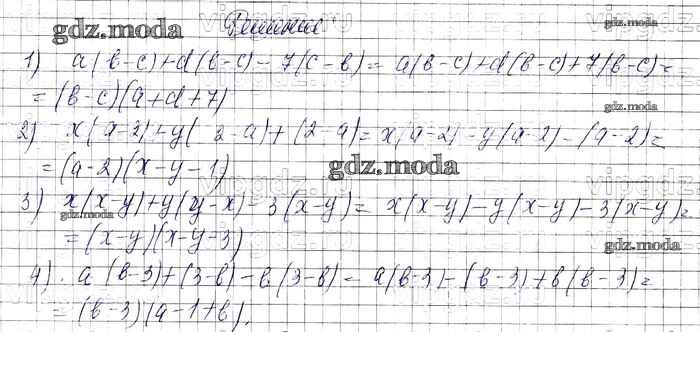 Решение
gdz.moda
1) a(b-c)+d(b-c)-7(c-b)= a(b-c)+d(b-c)+7(b-c)=
= (b-c)(a+d+7)
2) x(a-2)+y(2-a)+(2-a)= x(a-2)-y(a-2)-(a-2)=
= (a-2)(x-y-1)
gdz.moda
3) x(x-y)+y(y-x)-3(x-y)= x(x-y)-y(x-y)-3(x-y)=
gdz.moda
= (x-y)(x-y-3)
gdz.moda
4). a(b-3)+(3-b)-b(3-b)= a(b-3)-(b-3)+b(b-3)=
= (b-3)(a-1+b).
gdz.moda
gdz.moda